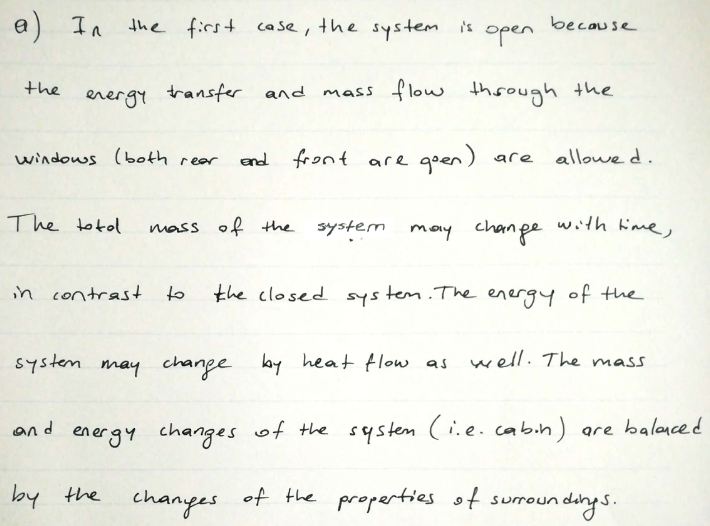 a) In the first case, the system is open because
the energy transfer and mass flow through the
windows (both rear and front are open) are allowed.
The total mass of the system may change with time,
in contrast to the closed system. The energy of the
system may change by heat flow as well. The mass
and energy changes of the system (i.e. cabin) are balanced
by the changes of the properties of surroundings.